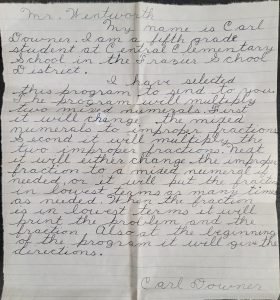 Mr. Wentworth
My name is Carl
Downer. I am a fifth grade
student at Central Elementary
School in the Frazur School
District.
I have selected
this program to send to you.
The program will multiply
two mixed numerals. First
it will change the mixed
numerals to improper fractions.
Second it will multiply the
two improper fractions. Next
it will either change the improper
fraction to a mixed numeral if
needed, or it will put the fraction
in lowest terms as many times
as needed. When the fraction
is in lowest terms it will
print the problem and the
fraction. Also at the beginning
of the program it will give the
directions.
Carl Downer